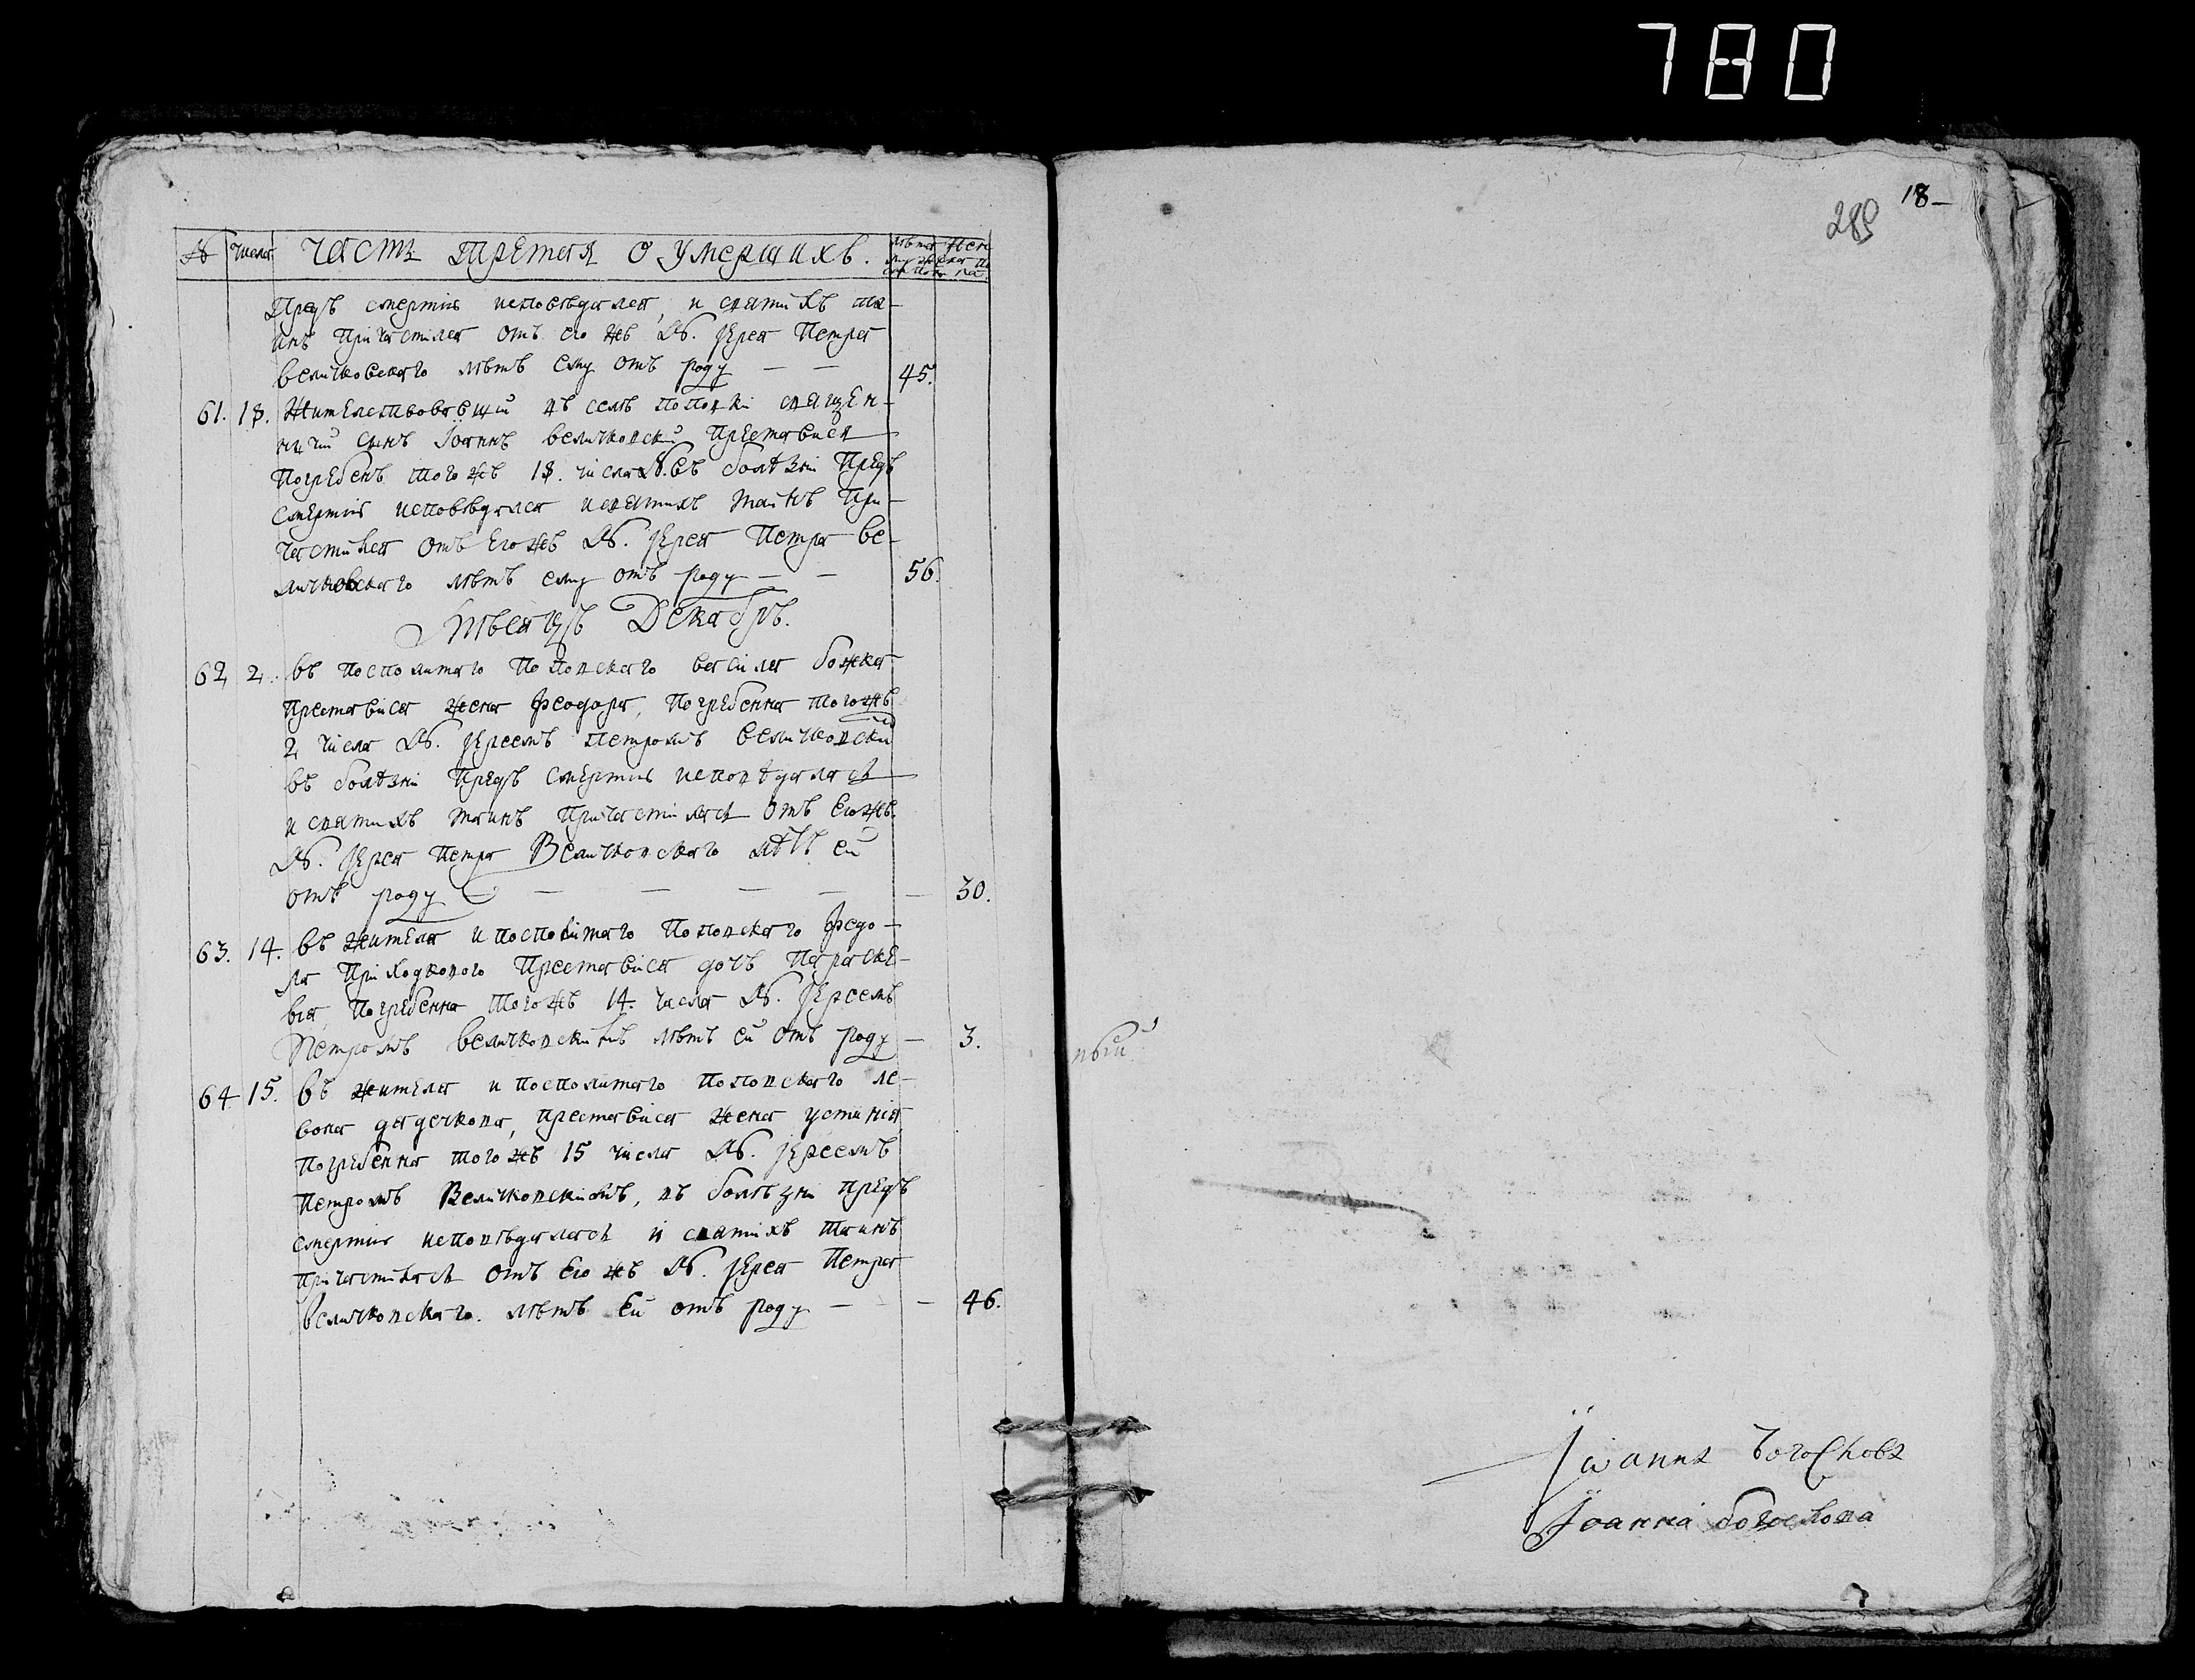 780
№ Число Часть третая о умершихъ. лѣта
Предъ смертию исповѣдался, и святихъ та-
инъ причастился отъ его жъ №. Іерея Петра
Величковского лѣтъ ему отъ роду — — 45.
61. 18. Жителствовавщій въ селѣ Поповки священ-
ничій синъ Іоаннъ Величковскій преставися
погребенъ того жъ 18. числа №. въ болѣзни предъ
смертию исповѣдался и святихъ таинъ при-
частился отъ его жъ №. Іерея Петра Ве-
личковского лѣтъ ему отъ роду — — 56.
Мѣсяцъ Декабръ.
62 2. въ посполитого поповского Василя Божка
преставися жена Феодора, погребенна того жъ
2 числа №. Іереемъ Петромъ Величковскій
въ болѣзни предъ смертию исповѣдалася
и святихъ таинъ причастилася отъ его жъ
№. Іерея Петра Величковского лѣтъ ей
отъ роду — — — — — 30.
63. 14. въ жителя и посполитого поповского Федо-
ра Приходкового преставися дочъ Параске-
вия, погребенна того жъ 14. числа №. Іереемъ
Петромъ Величковскимъ лѣтъ ей отъ роду — 3.
64 15. въ жителя и посполитого поповского Ле-
вона Дядечкова, преставися жена Устиния
погребенна того жъ 15 числа №. Іереемъ
Петромъ Величковскимъ, въ болѣзни предъ
смертию исповѣдалася и святихъ таинъ
причастилася отъ его жъ №. Іерея Петра
Величковского. лѣтъ ей отъ роду — — 46.
18—
289
Іѡаннъ Богословъ
Іоанна Богослова